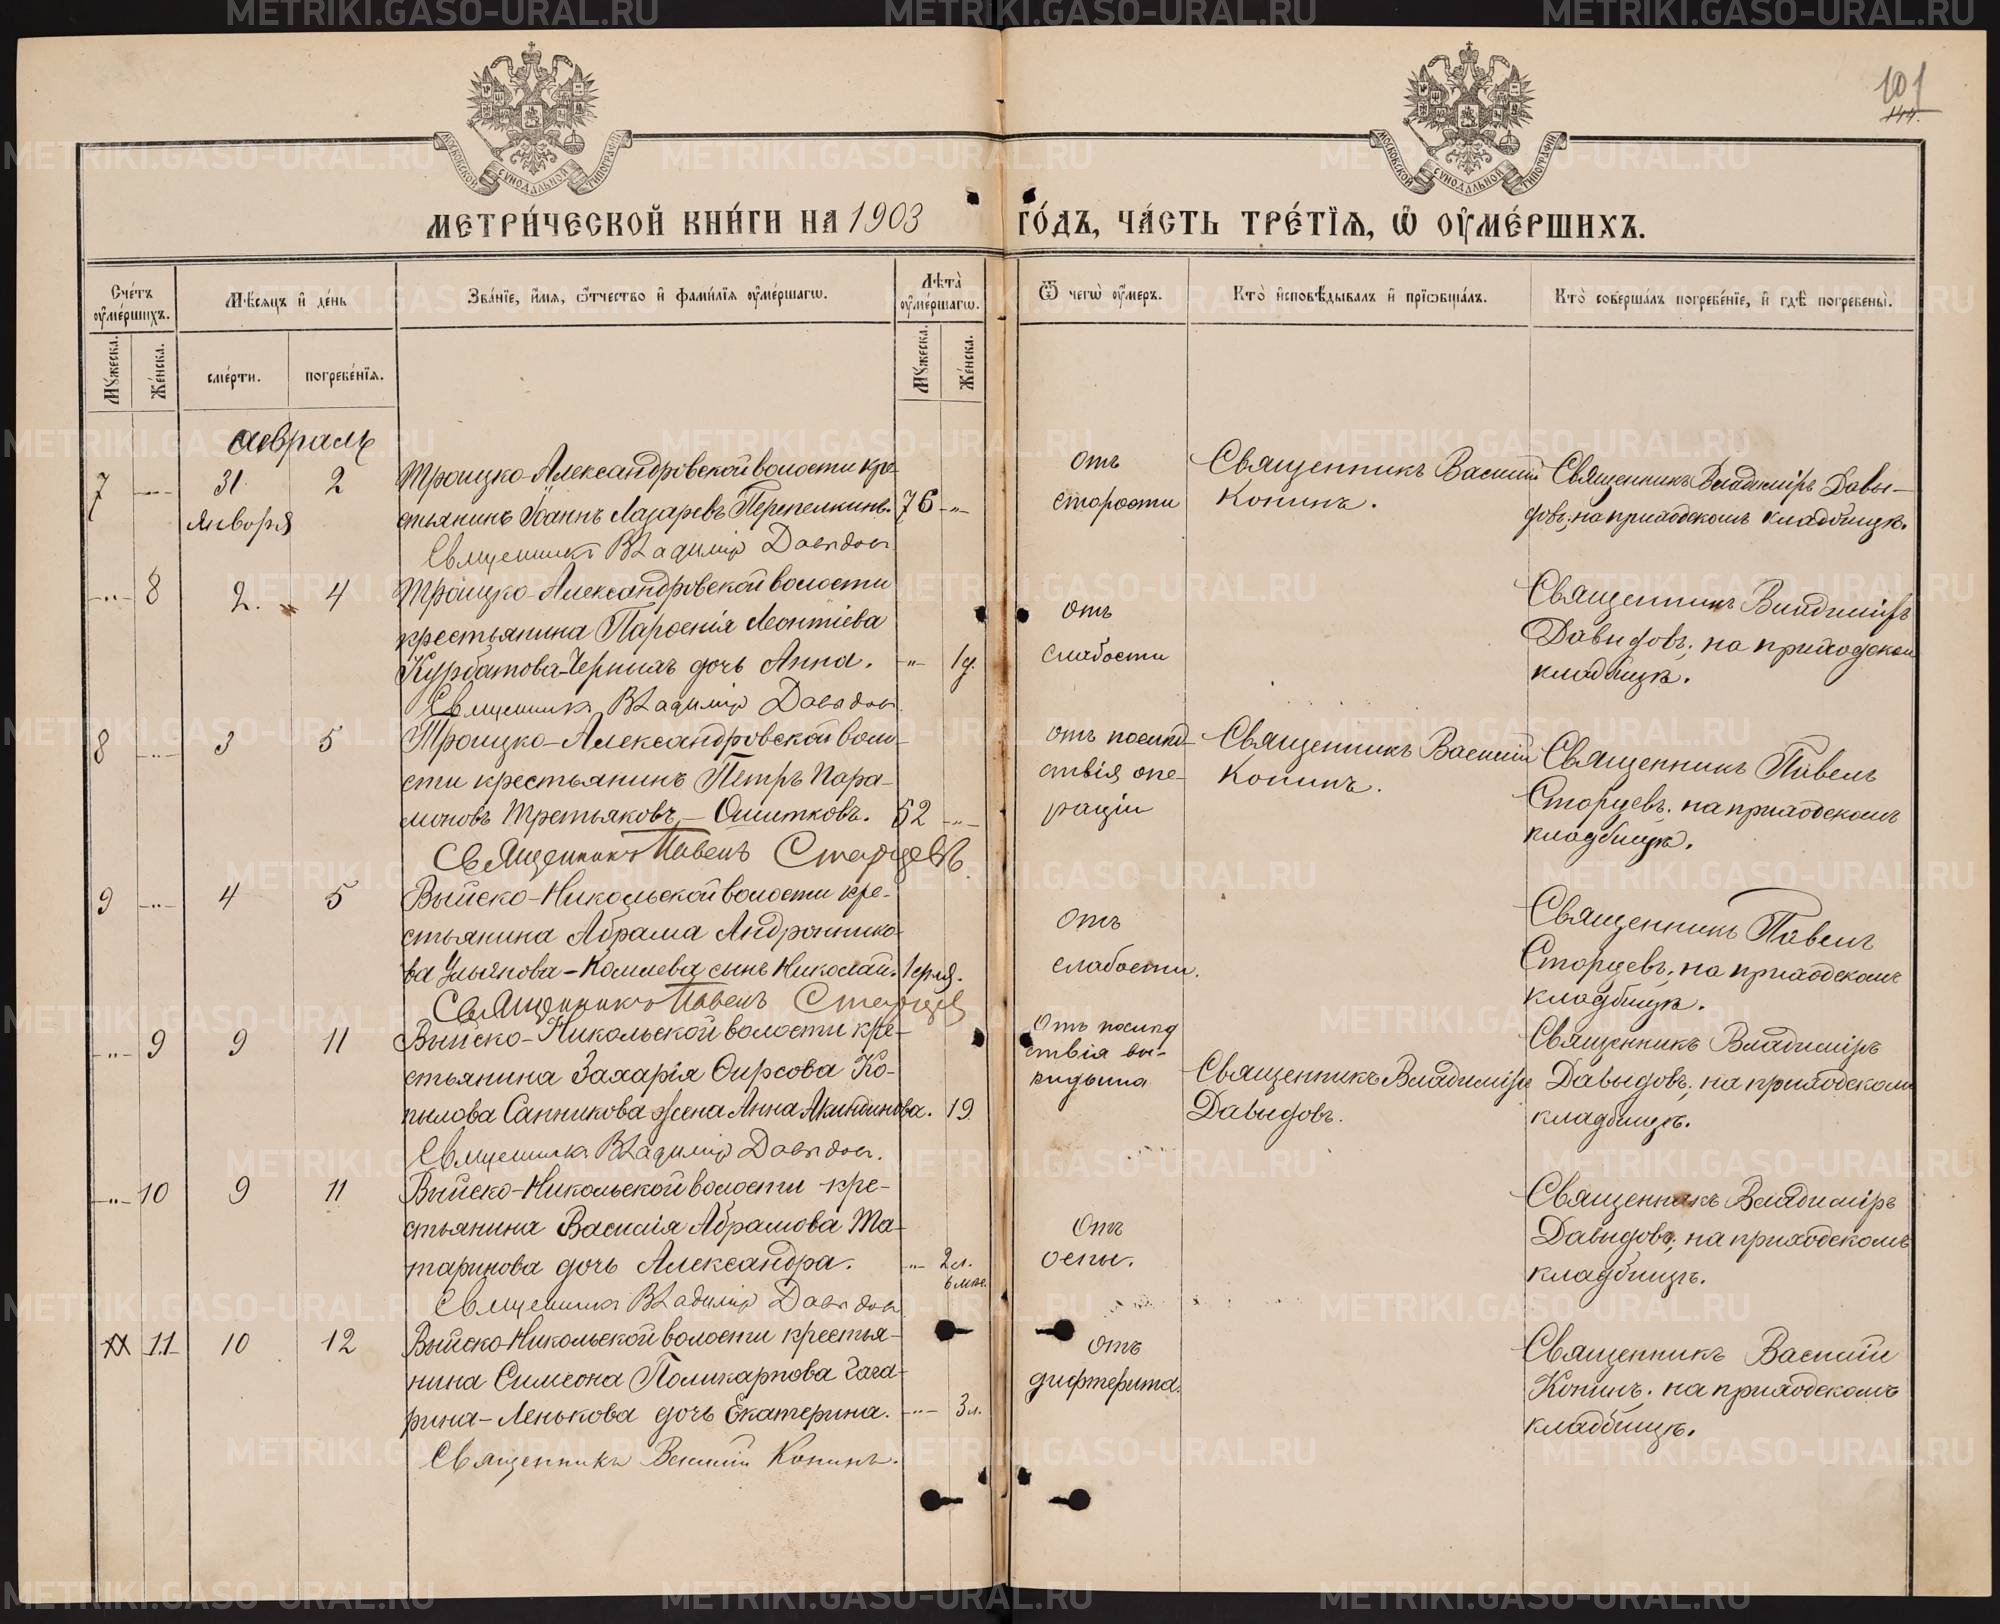 101
144.
МОСКОВСКОЙ СѴНОДАЛЬНОЙ ТИПОГРАФІИ
МОСКОВСКОЙ СѴНОДАЛЬНОЙ ТИПОГРАФІИ
МЕТРИ́ЧЕСКОЙ КНИ́ГИ НА 1903 ГО́ДЪ, ЧА́СТЬ ТРЕ́ТІѦ, Ѽ ОУ҆МЕ́РШИХЪ.
Сче́тъ оу҆ме́ршихъ.
Мѣ́сѧцъ и҆ де́нь
Зва́нїе, и҆́мѧ, ѻ҆́тчество и҆ фами́лїѧ оу҆ме́ршагѡ.
Лѣта̀ оу҆ме́ршагѡ.
Ѿ чегѡ̀ оу҆́меръ.
Кто̀ и҆сповѣ́дывалъ и҆ прїѡбща́лъ.
Кто̀ соверша́лъ погребе́нїе, и҆ гдѣ̀ погребены̀.
Мꙋ́жеска.
Же́нска.
сме́рти.
погребе́нїѧ.
Мꙋ́жеска.
Же́нска.
Февраль
7 -"- 31 января 2
Троицко-Александровской волости кре-
стьянинъ Іоаннъ Лазаревъ Перепелкинъ. 76 -"-
Священникъ Владиміръ Давыдовъ
отъ
старости
Священникъ Василій
Копинъ.
Священникъ Владиміръ Давы-
довъ, на приходскомъ кладбищѣ.
-"- 8 2. 4
Троицко-Александровской волости
крестьянина Парѳенія Леонтіева
Курбатова-Черныхъ дочь Анна. -"- 1 д.
Священникъ Владиміръ Давыдовъ
отъ
слабости
Священникъ Владиміръ
Давыдовъ; на приходском
кладбищѣ.
8 -"- 3 5
Троицко-Александровской воло-
сти крестьянинъ Петръ Пара-
моновъ Третьяковъ - Ошитковъ. 52 -"-
Священникъ Павелъ Старцевъ.
отъ послѣд-
ствія опе-
раціи
Священникъ Василій
Копинъ.
Священникъ Павелъ
Старцевъ. на приходскомъ
кладбищѣ.
9 -"- 4 5
Выйско-Никольской волости кре-
стьянина Абрама Андронико-
ва Ульянова-Комлева сынъ Николай.
Священникъ Павелъ Старцев
отъ
слабости.
Священникъ Павелъ
Старцевъ, на приходскомъ
кладбищѣ.
-"- 9 9 11
Выйско-Никольской волости кре-
стьянина Захарія Ѳирсова Ко-
пылова Санникова жена Анна Акиндинова. 19
Священникъ Владиміръ Давыдовъ.
Отъ послѣд
ствія вы-
кидыша
Священникъ Владиміръ
Давыдовъ.
Священникъ Владиміръ
Давыдовъ; на приходскомъ
кладбищѣ.
-"- 10 9 11
Выйско-Никольской волости кре-
стьянина Василія Абрамова Та-
таринова дочь Александра. -"- 2 л. 6 мѣс.
Священникъ Владиміръ Давыдовъ
Отъ
оспы.
Священникъ Владиміръ
Давыдовъ, на приходскомъ
кладбищѣ.
11 10 12
Выйско-Никольской волости крестья-
нина Симеона Поликарпова Гага-
рина-Ленькова дочь Екатерина. -"- 3 л.
Священникъ Василій Копинъ.
отъ
дифтерита.
Священникъ Василій
Копинъ. на приходскомъ
кладбищѣ.
METRIKI.GASO-URAL.RU